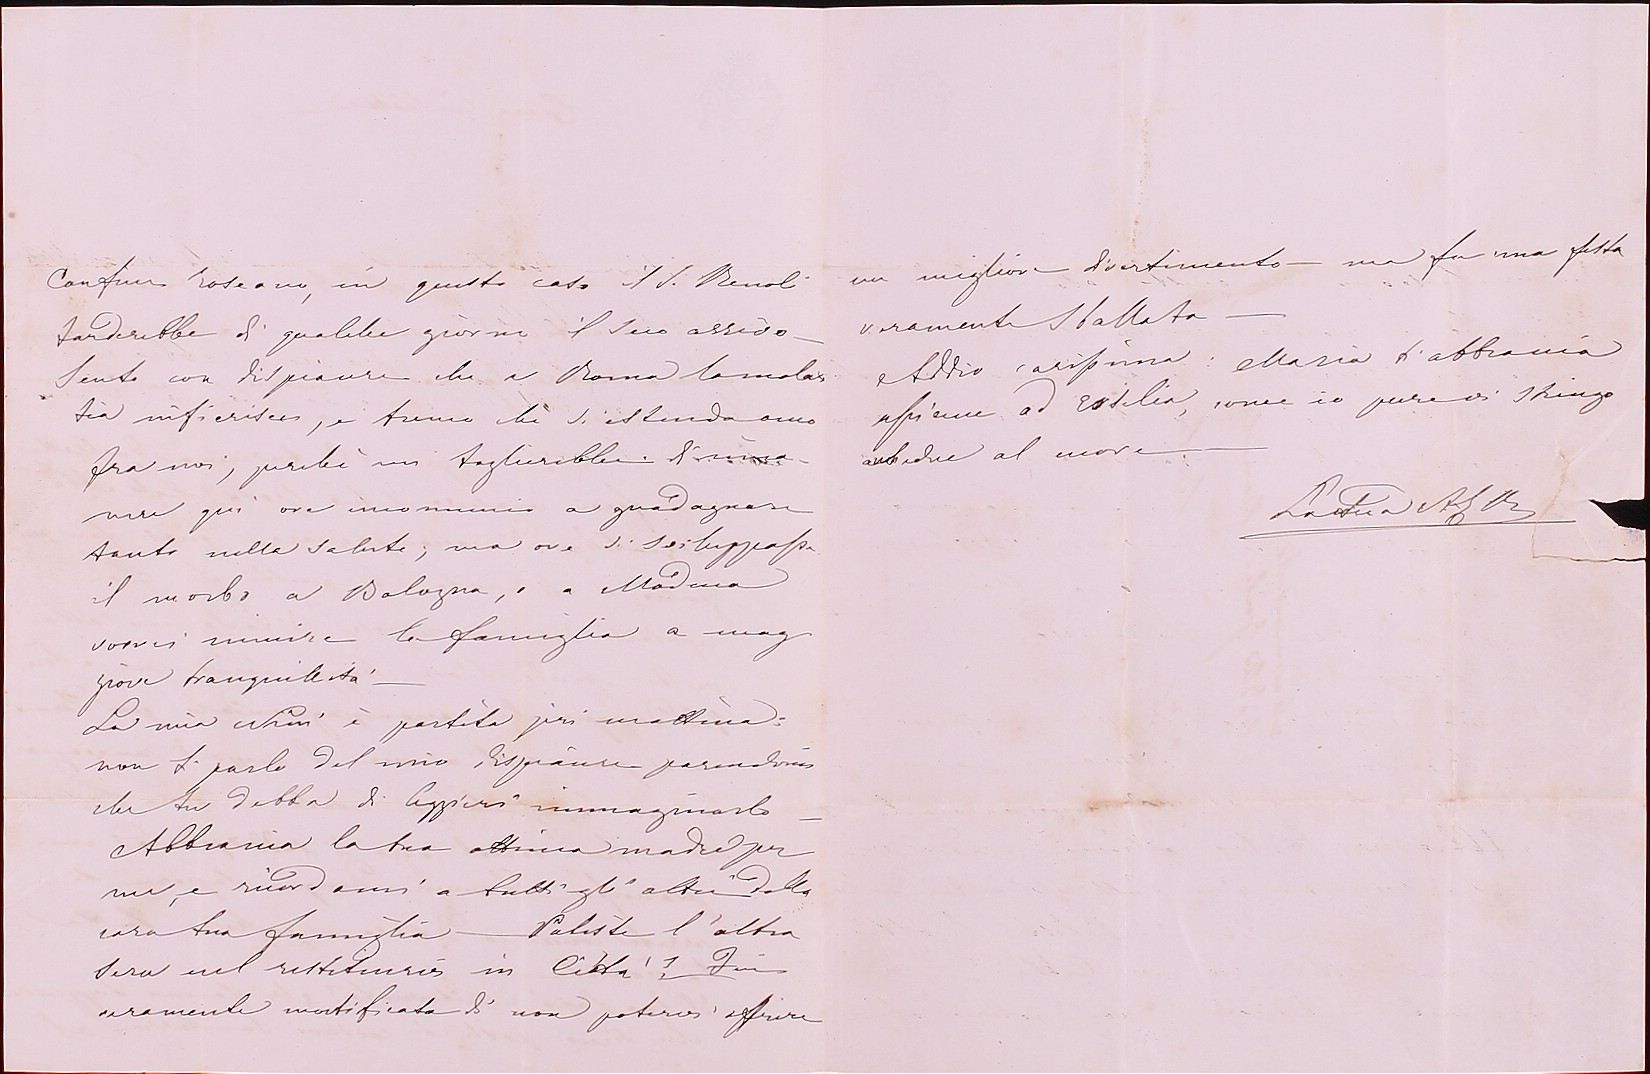 Confine Toscano, in questo caso il S. Renoli
tarderebbe di qualche giorno il suo arrivo _
Sento con dispiacere che a Roma la malat
tia inferisce, e tremo che si estenda anco
fra noi, perché mi toglierebbe di rima
nere qui ove incomincio a guadagnare
tanto nella salute; ma ove si sviluppasse
il morbo a Bologna, o a Modena
vorrei riunire la famiglia a mag
giore tranquillità —
La mia Ninì è partita jeri mattina:
non ti parlo del mio dispiacere parendomi
che tu debba di leggieri immaginarlo _
Abbraccia la tua ottima madre per
me, e ricordami a tutti gli altri della
cara tua famiglia — Patiste l'altra
sera nel restituirvi in Città? Fui
veramente mortificata di non potervi offrire
un migliore divertimento — ma fu una festa
veramente sballata —
Addio carissima: Maria t'abbraccia
assieme ad Ersilia, come io pure vi stringo
ambedue al cuore. —
La Tua